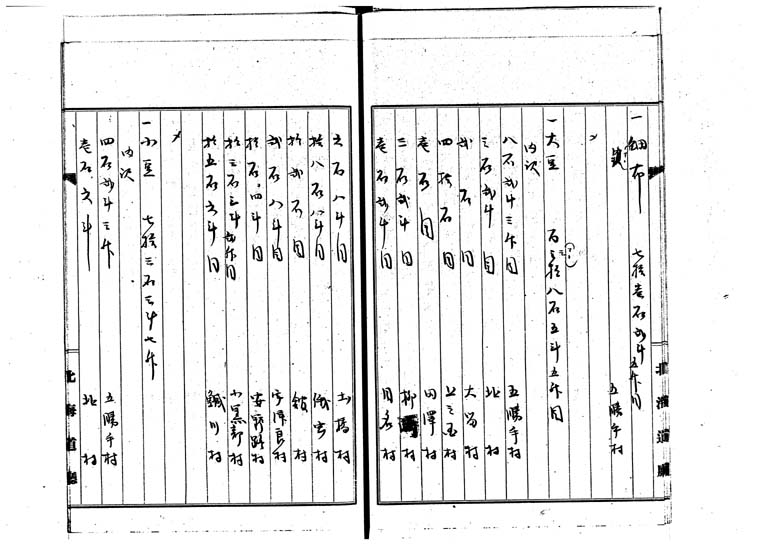 一 細布 七拾壱石弐斗五升目
五勝手村
〆
一 大豆 百三拾八石五斗五升目
内次
八石弐斗三升目 五勝手村
三石弐斗目 北村
弐石目 大留村
四拾石目 上之国村
壱石目 田澤村
三石弐斗目 柳村
壱石弐斗目 目名村
六石八斗目 土橋村
拾八石八斗目 俄虫村
拾弐石目 館村
弐石八斗目
拾石四斗目 安野呂村
拾三石三斗弐升目 小黒部村
拾五石六斗目 鶉川村
〆
一 小豆 七拾三石三斗七升
内次
四石弐斗三升 五勝手村
壱石六斗 北村
北海道廳
北海道廳